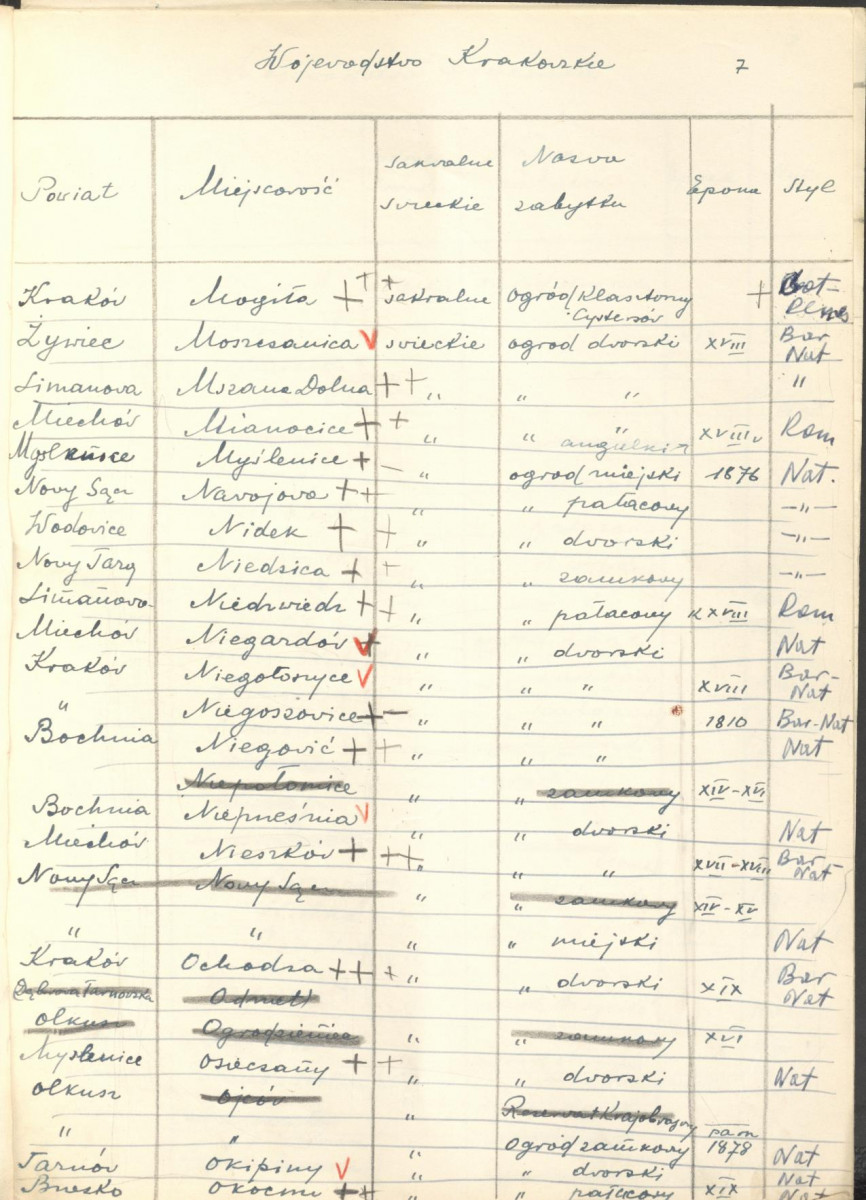 Województwo Krakowskie 7
Powiat Miejscowość sakralne świeckie Nazwa zabytku Epoka Styl
Kraków Mogiła + + + sakralne ogród klasztorny Cystersów + Bot- Renes
Żywiec Moszczanica V świeckie ogród dworski XVIII Bar Nat
Limanowa Mszana Dolna + + " " " "
Miechów Mianocice + + " " " angielski XVIII Rom
Myślenice Myślenice + - " ogród miejski 1876 Nat.
Nowy Sącz Nawojowa + + " " pałacowy -"-
Wadowice Nidek + + " " dworski -"-
Nowy Targ Niedzica + + " " zamkowy -"-
Limanowa Niedźwiedź + + " " pałacowy k XVIII Rom
Miechów Niegardów V + " " dworski Nat
Kraków Niegoszyce V " " " XVIII Bar- Nat
" Niegoszowice + - " " " 1810 Bar-Nat
Bochnia Niegowić + + " " " Nat
Niepołomice " zamkowy XIV-XVI
Bochnia Nieprześnia V " " dworski Nat
Miechów Nieszków + + + " " " XVII-XVIII Bar Nat
Nowy Sącz Nowy Sącz " " zamkowy XIV-XV
" " " " miejski Nat
Kraków Ochodza + + + " " dworski XIX Bar Nat
Dąbrowa Tarnowska Odmęt
Olkusz Ogrodzieniec " " zamkowy XVI
Myślenice Osieczany + + " " dworski Nat
Olkusz Ojców " Rezerwat Krajobrazowy
" " ogród zamkowy 1878 Nat
Tarnów Okipiny V " " dworski Nat
Brzesko Okocim + + " " pałacowy XIX Nat